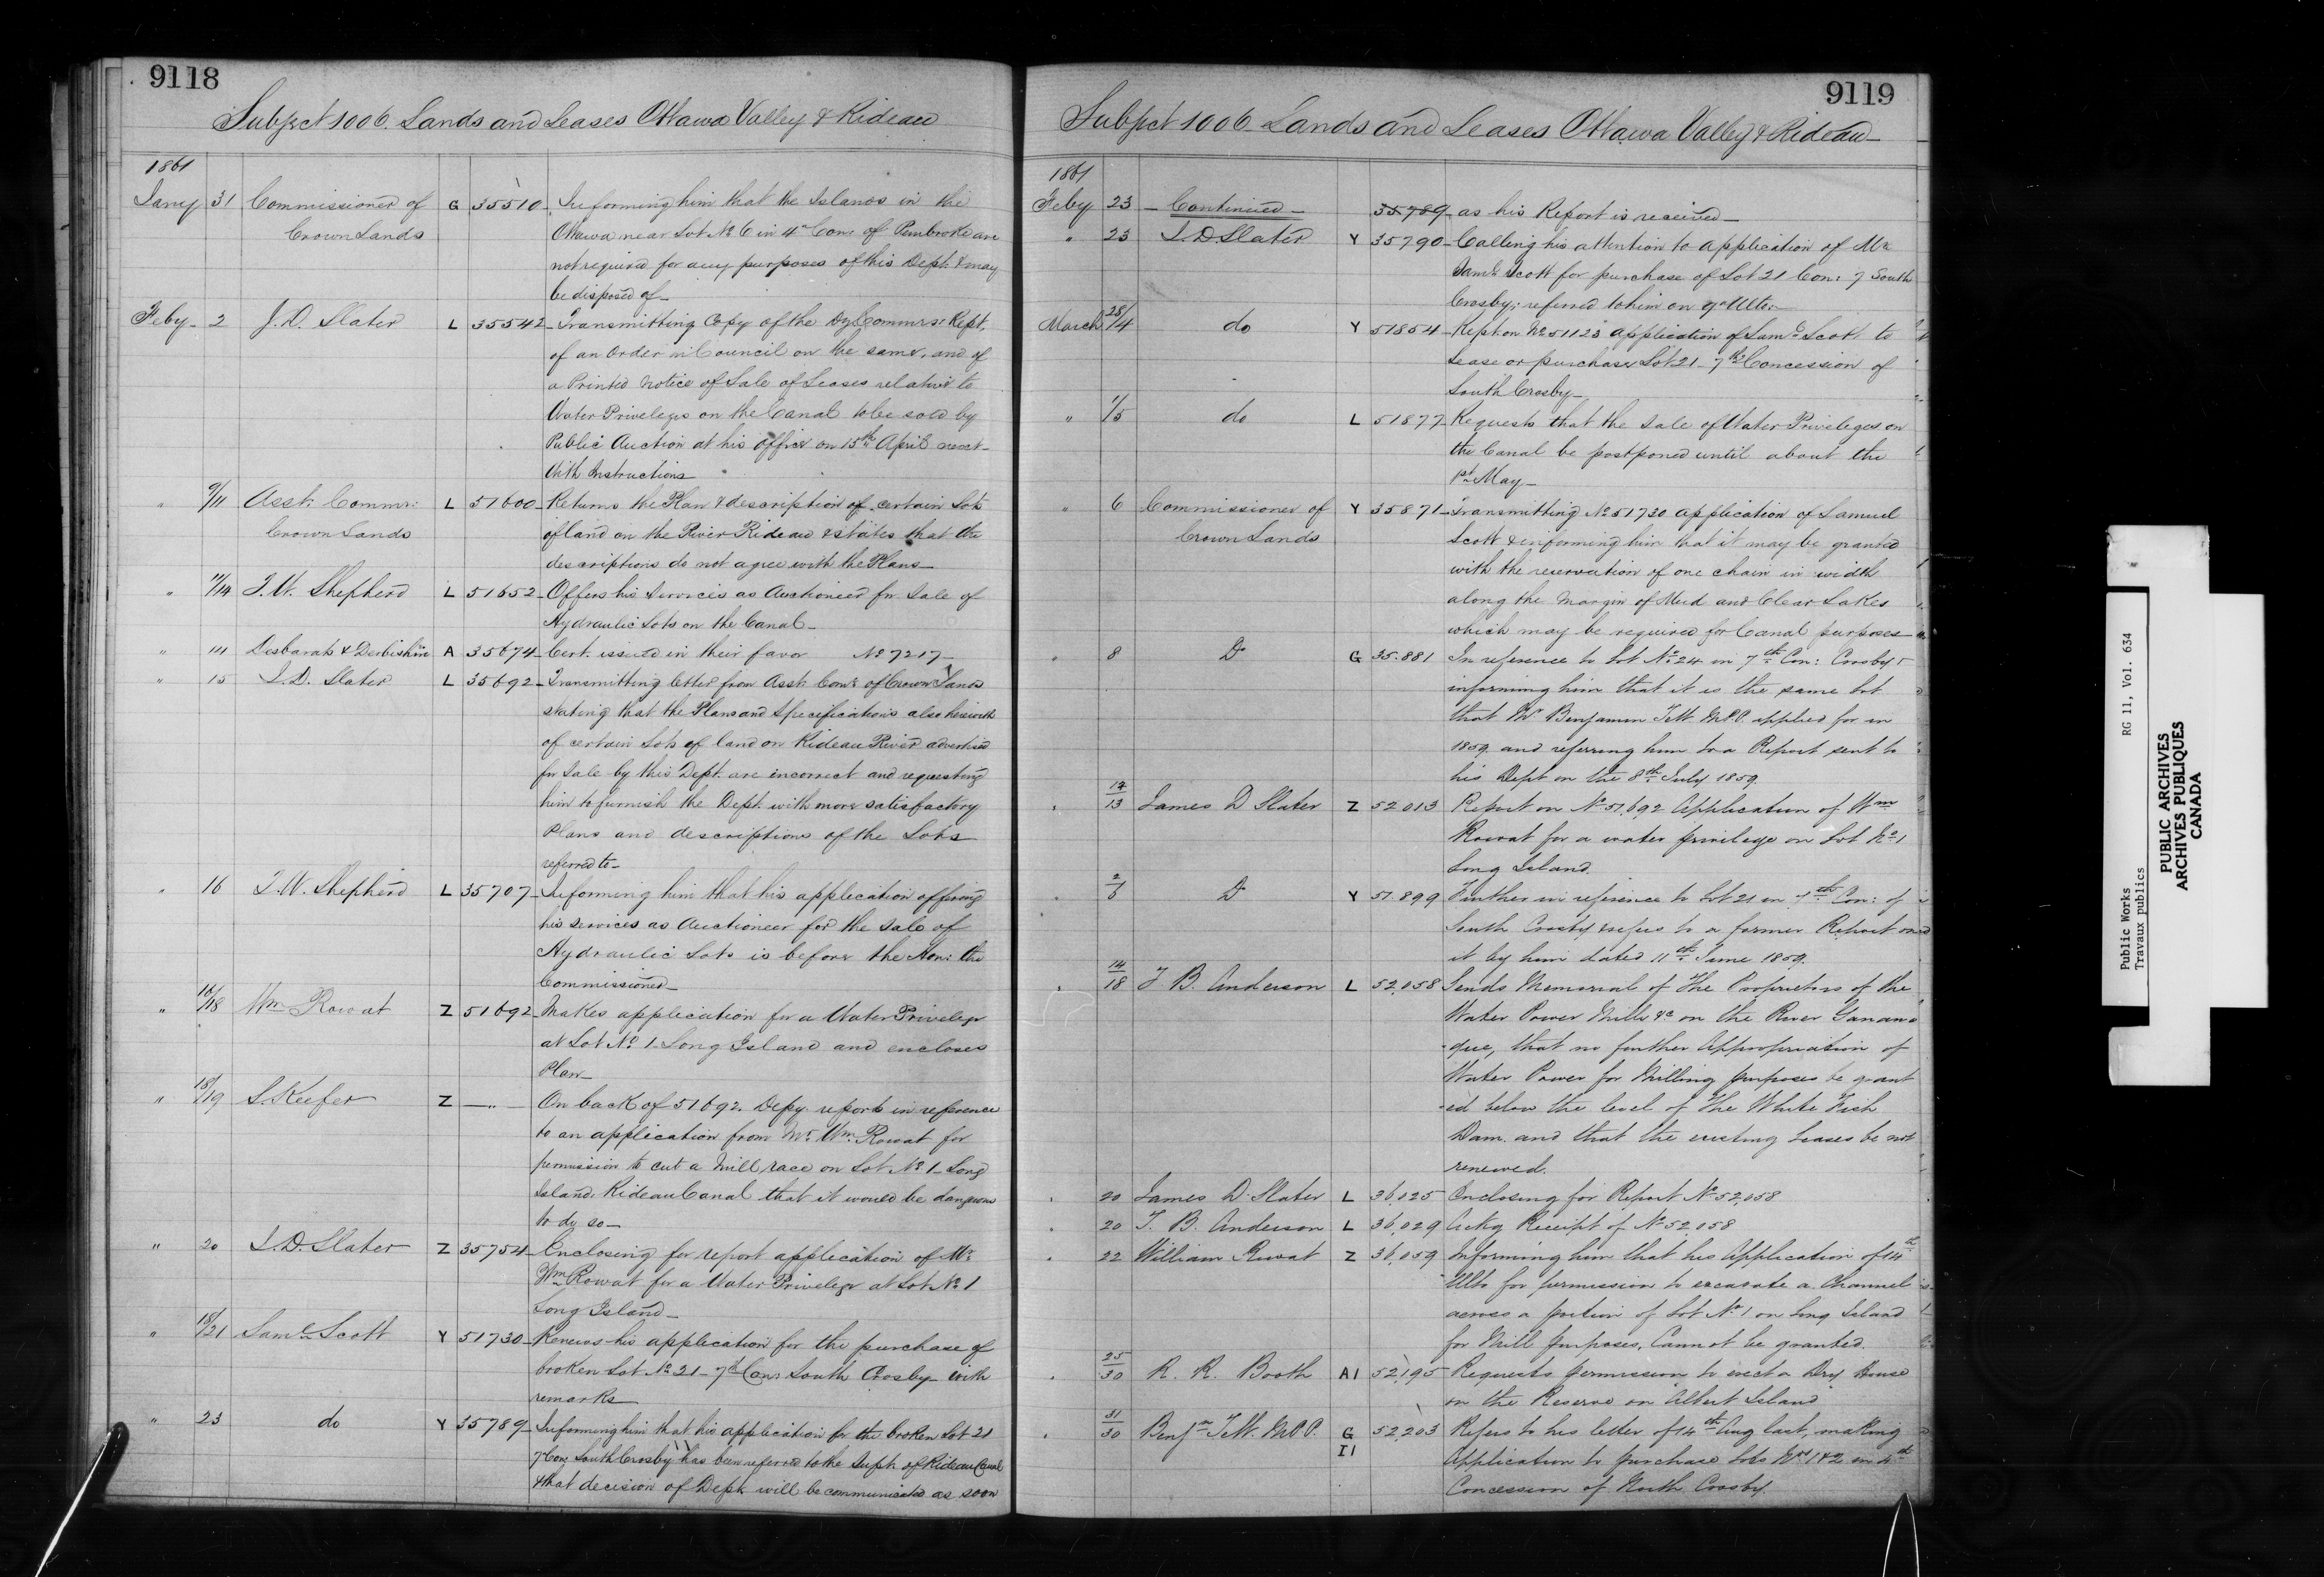 9118
Subject 1006. Lands and Leases Ottawa Valley & Rideau
1861
Jany 31 Commissioner of G 35510 Informing him that the Islands in the
Crown Lands Ottawa near Lot No 6 in 4th Con: of Pembroke are
not required for any purposes of this Dept. & may
be disposed of_
Feby_ 2 J. D. Slater L 35542_ Transmitting Copy of the Dy Commrs: Rept.
of an Order in Council on the same, and of
a Printed Notice of Sale of Leases relative to
Water Priveleges on the Canal to be sold by
Public Auction at his office on 15th April next_
With Instructions_
" 9/11 Asst: Commr: L 51600_ Returns the Plan & description of certain Lots
Crown Lands of land on the River Rideau & states that the
descriptions do not agree with the Plans_
" 11/14 T. W. Shepherd L 51652_ Offers his Services as Auctioneer for Sale of
Hydraulic Lots on the Canal_
" 14 Desbarats & Derbishire A 35674_ Cert. issued in their favor No 7217_
" 15 J. D. Slater L 35692_ Transmitting letter from Asst: Comr of Crown Lands
stating that the Plans and Specifications also
of certain Lots of land on Rideau River advertised
for Sale by this Dept. are incorrect and requesting
him to furnish the Dept. with more satisfactory
Plans and descriptions of the Lots
referred to_
" 16 T. W. Shepherd L 35707_ Informing him that his application offering
his services as Auctioneer for the Sale of
Hydraulic Lots is before the Hon: the
Commissioner_
" 16/18 Wm Rowat Z 51692_ Makes application for a Water Privelege
at Lot No 1_ Long Island and encloses
Plan_
" 18/19 S. Keefer Z _ " _ On back of 51692. Depy. reports in reference
to an application from Mr. Wm. Rowat for
permission to cut a Mill race on Lot No. 1_ Long
Island. Rideau Canal that it would be dangerous
to do so_
" 20 J. D. Slater Z 35754_ Enclosing for report application of Mr.
Wm Rowat for a Water Privelege at Lot No 1
Long Island_
" 18/21 Saml Scott Y 51730_ Renews his application for the purchase of
broken Lot No 21_ 7th Con: South Crosby_ with
remarks_
" 23 do Y 35789_ Informing him that his application for the broken Lot 21
7th Con: South Crosby has been referred to the Supt. of Rideau Canal
& that decision of Dept. will be communicated as soon
9119
Subject 1006_ Lands and Leases Ottawa Valley & Rideau_
1861
Feby 23 _ Continued _ 35789_ as his Report is received_
" 23 J. D. Slater Y 35790_ Calling his attention to application of Mr
Saml. Scott for purchase of Lot 21 Con: 7 South
Crosby; referred to him on 9th Ulto:_
March 28/4 do Y 51854_ Rept. on No 51123 application of Saml Scott to
Lease or purchase Lot 21_ 7th Concession of
South Crosby_
" 1/5 do L 51877 Requests that the Sale of Water Priveleges on
the Canal be postponed until about the
1st May_
" 6 Commissioner of Y 35871_ Transmitting No 51730 application of Samuel
Crown Lands Scott & informing him that it may be granted
with the reservation of one chain in width
along the Margin of Mud and Clear Lakes
which may be required for Canal purposes_
" 8 Do G 35.881 In reference to Lot No 24 in 7th Con: Crosby_
informing him that it is the same lot
that Mr Benjamin Tett M.P.P. applied for in
1859 and referring him to a Report sent to
his Dept on the 8th July 1859.
" 12/13 James D Slater Z 52,013 Report on No 51,692 Application of Wm
Rowat for a water privilege on Lot No 1
Long Island.
" 2/6 Do Y 51.899 Further in reference to Lot 21 in 7th Con: of
South Crosby & refers to a former Report on
it by him dated 11th June 1859.
" 14/18 T B. Anderson L 52,058 Sends Memorial of The Proprietors of the
Water Power Mills &c on the River Ganano
-que, that no further Appropriation of
Water Power for Milling purposes be grant
-ed below the level of The White Fish
Dam. and that the existing Leases be not
renewed.
" 20 James D. Slater L 36,025 Enclosing for Report No 52,058
" 20 T. B. Anderson L 36,029 Ackg Receipt of No 52,058
" 22 William Rowat Z 36,059 Informing him that his Application of 14th
Ulto for permission to excavate a Channel
across a portion of Lot No 1 on Long Island
for Mill purposes, Cannot be granted.
" 25/30 R. R. Booth A1 52,195 Requests permission to erect a Dry House
on the Reserve on Albert Island
" 31/30 Benjn Tett. M.P.P. G I1 52,203 Refers to his letter of 14th Aug last, making
Application to purchase Lots Nos 1 & 2 in 4th
Concession of North Crosby.
Public Works RG 11, Vol. 634
Travaux publics
PUBLIC ARCHIVES
ARCHIVES PUBLIQUES
CANADA